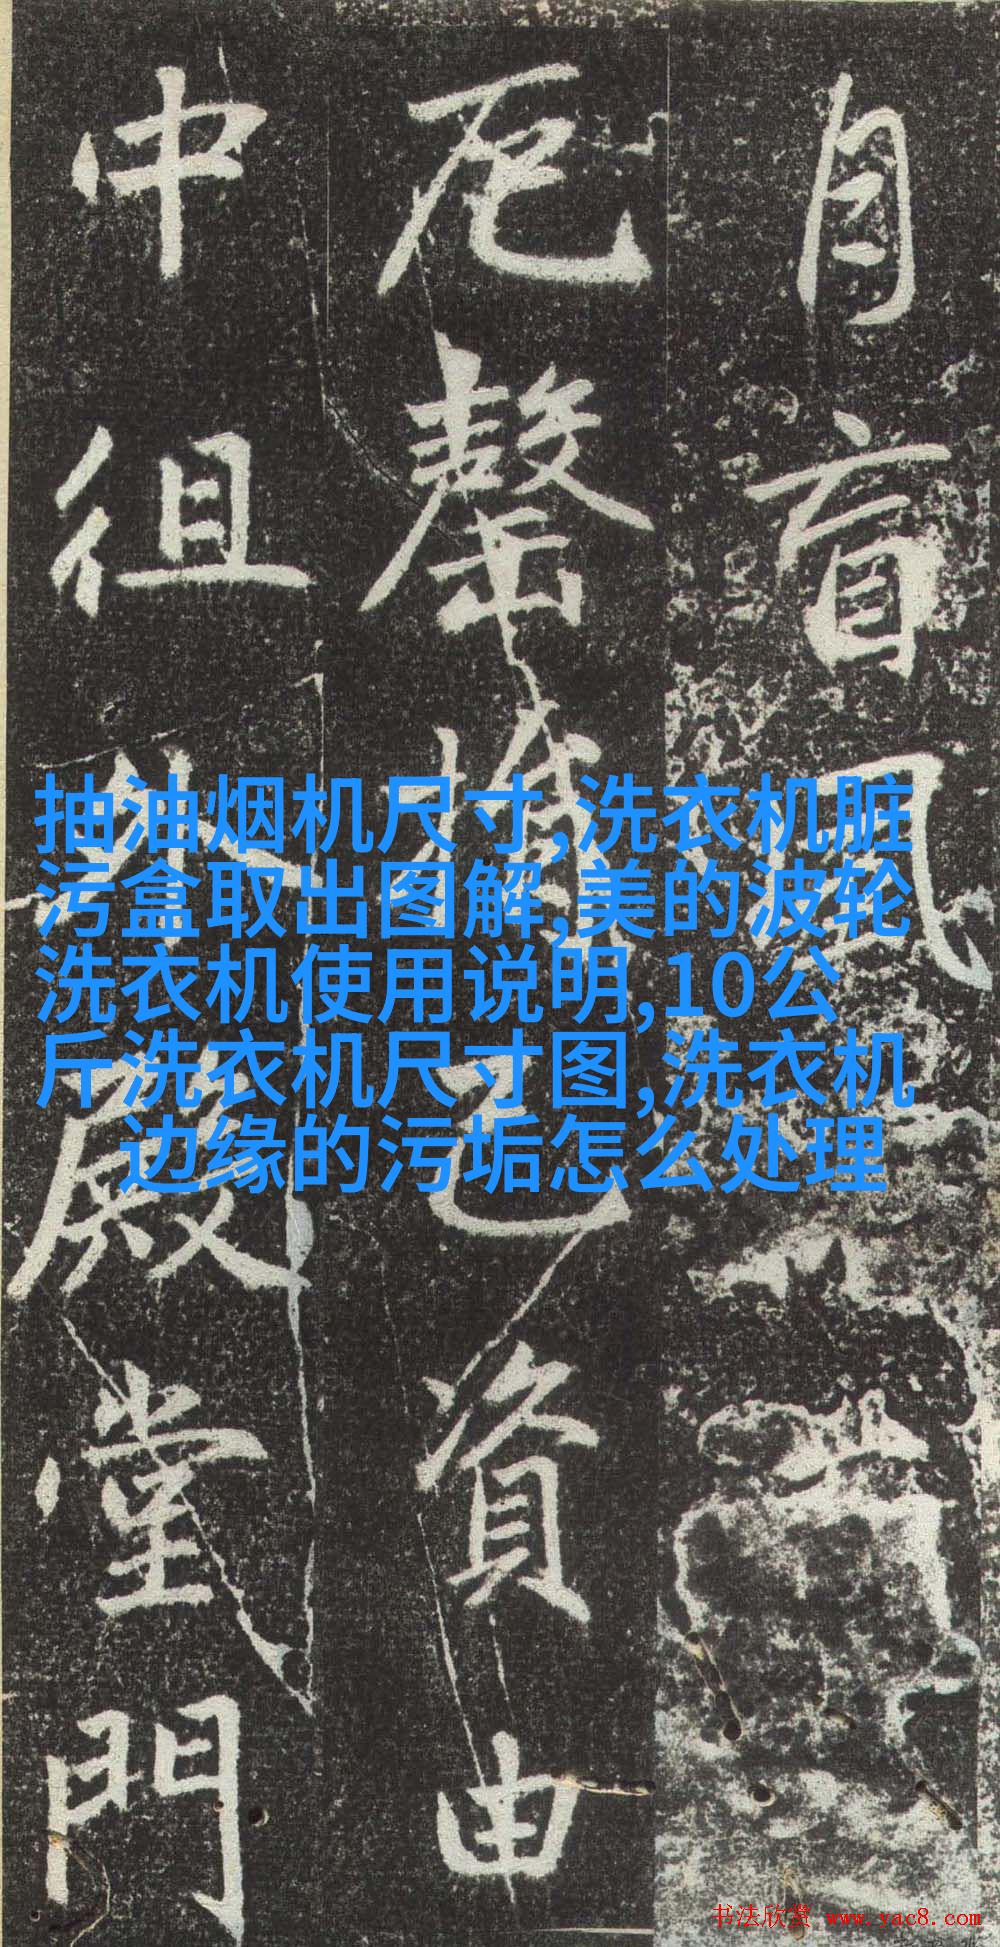 自盲風
厄罄己資由
中徂殿堂門
抽油烟机尺寸,洗衣机脏
污盒取出图解,美的波轮
洗衣机使用说明,10公
斤洗衣机尺寸图,洗衣机
边缘的污垢怎么处理
书法欣赏 www.yac8.com